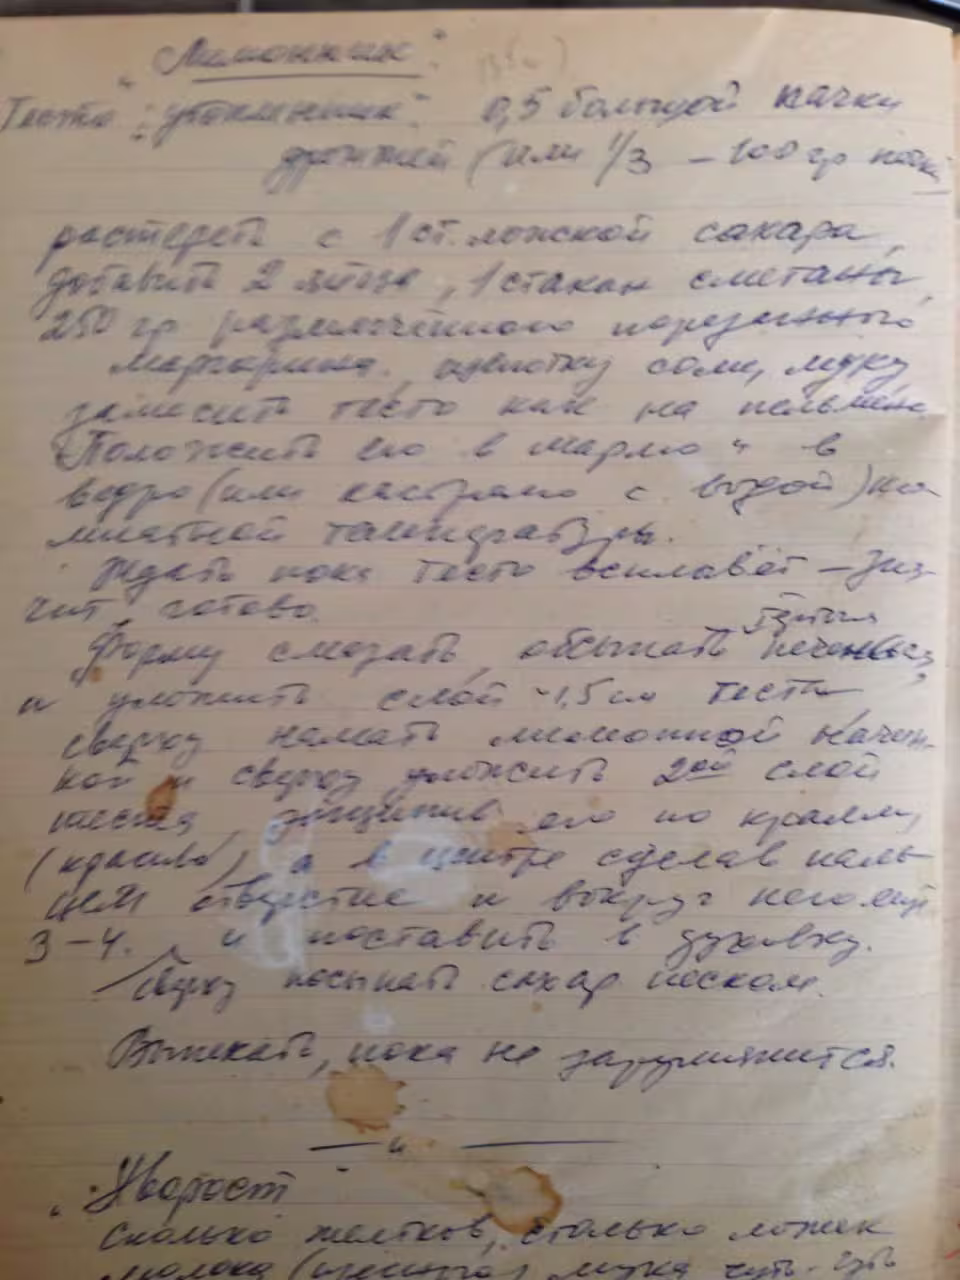 "Лимонник".
Тесто: "утопленник". 0,5 большой пачки
дрожжей (или 1/3 – 100 гр пачки
растереть с 1 ст. ложкой сахара,
добавить 2 яйца, 1 стакан сметаны,
250 гр размягчённого порезанного
маргарина, щепотку соли, муку
замесить тесто как на пельмени.
Положить его в марлю и в
ведро (или кастрюлю с водой) ком
мнатной температуры.
Ждать пока тесто всплывёт – зна-
чит, готово.
Форму смазать, обсыпать печеньем,
и уложить слой ~1,5 см теста
сверху намазать лимонной начин-
кой и сверху уложить 2ой слой
теста, защипив его по краям,
(красиво), а в центре сделав паль-
цем отверстие и вокруг него ещё
3–4. и поставить в духовку.
Сверху посыпать сахар песком.
Выпекать, пока не зарумянится.
— " —
"Хворост
Сколько желтков, столько ложек
молока мука чуть-чуть